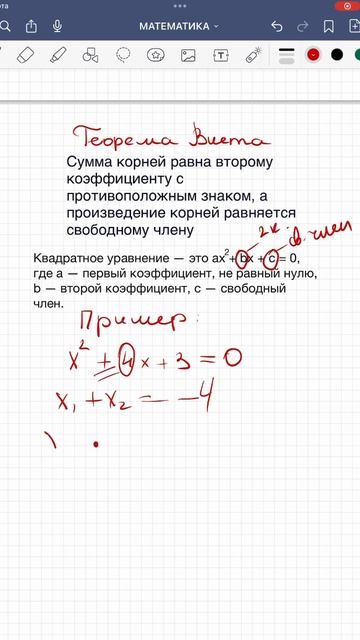 МАТЕМАТИКА
Теорема Виета
Сумма корней равна второму
коэффициенту с
противоположным знаком, а
произведение корней равняется
свободному члену
2к. св. член
Квадратное уравнение — это ax²+ bx + c = 0,
где a — первый коэффициент, не равный нулю,
b — второй коэффициент, c — свободный
член.
Пример:
x² + 4x + 3 = 0
x₁ + x₂ = -4